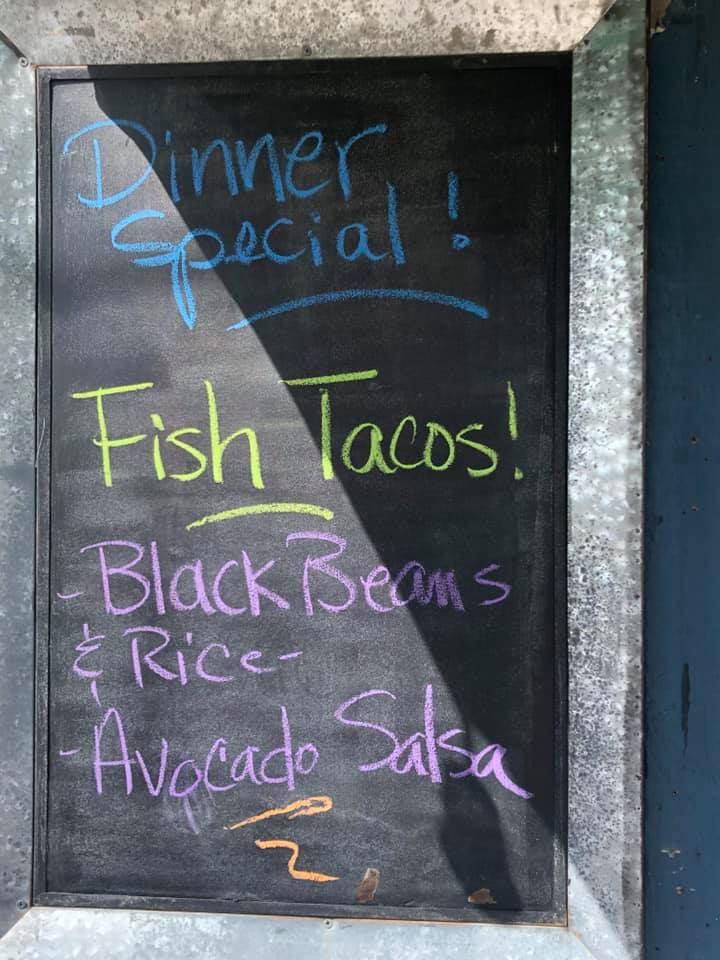 Dinner
Special!
Fish Tacos!
-Black Beans
& Rice-
-Avocado Salsa